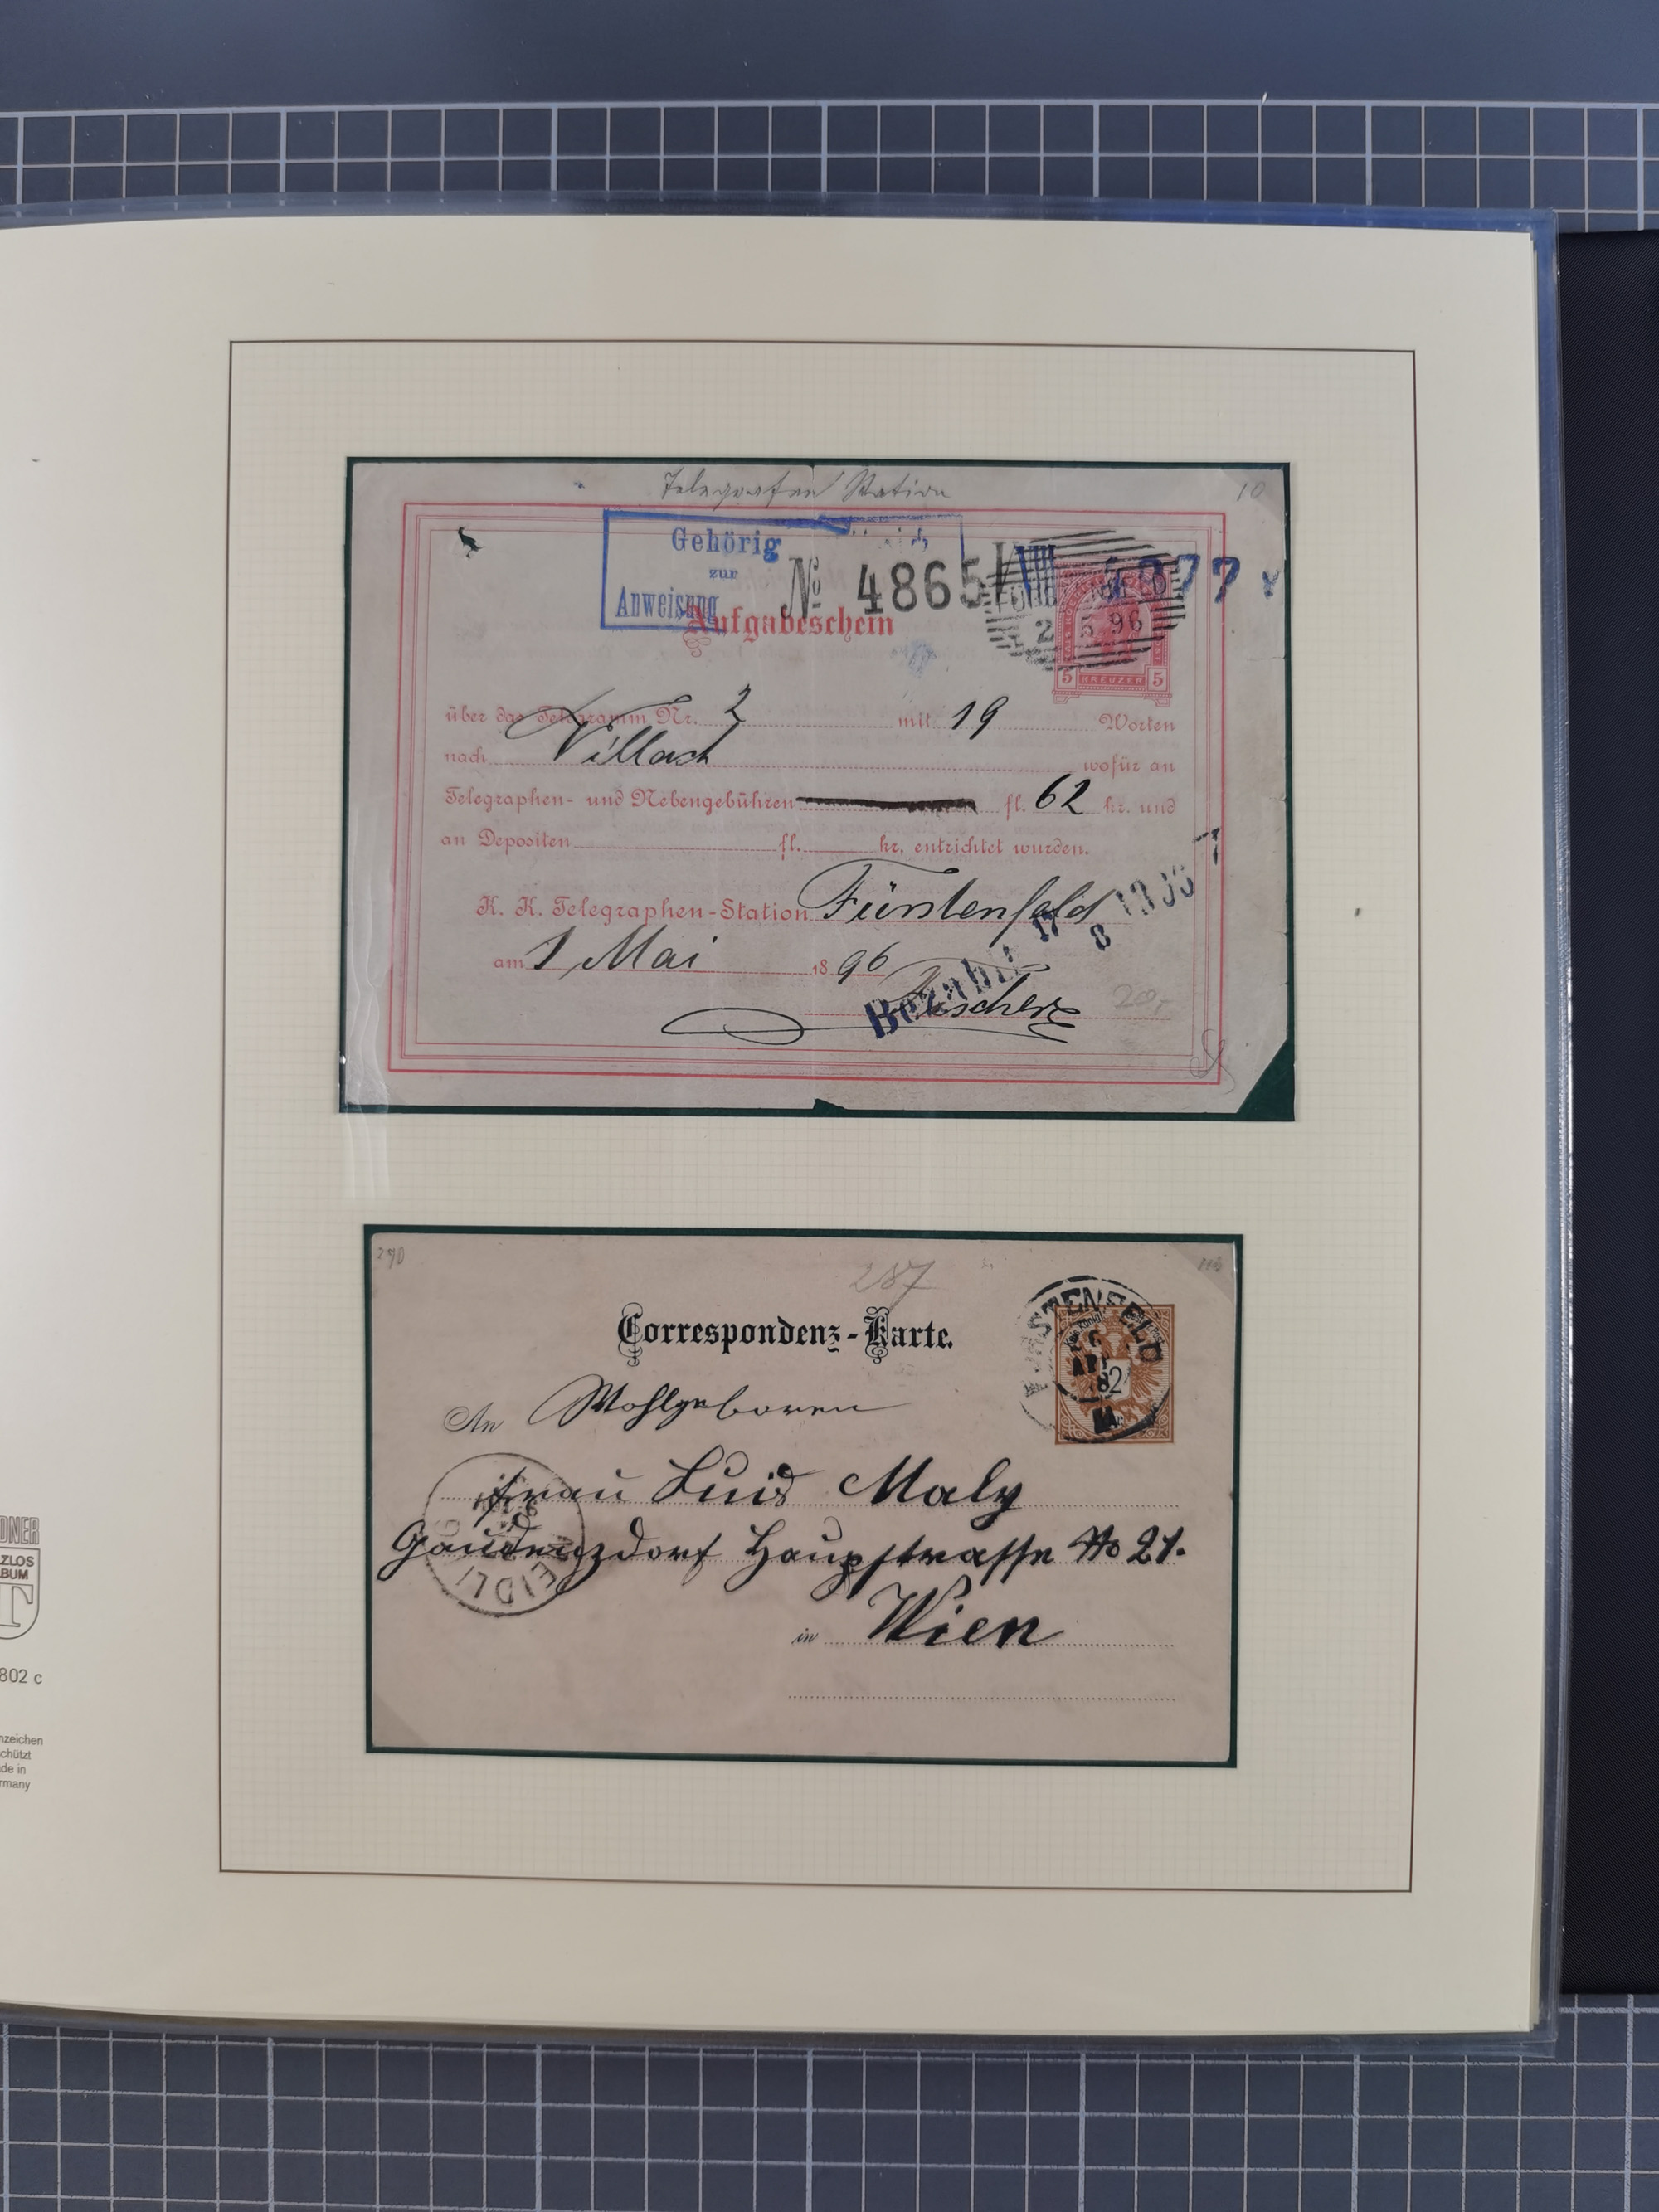 Telegrafen Station
10
Gehörig
zur
Anweisung
№ 4865
Aufgabeschein
2 5 96
5 KREUZER 5
über das Telegramm Nr. 2 mit 19 Worten
nach Villach wofür an
Telegraphen- und Nebengebühren fl. 62 kr. und
an Depositen fl. kr. entrichtet wurden.
K. K. Telegraphen-Station Fürstenfeld
am 1 Mai 1896
Bezahlt 17 8
20,-
290
287
Correspondenz-Karte.
FÜRSTENFELD
26
APR
82
An Wohlgeboren
Frau Luis Maly
Gaudenzdorf Hauptstrasse No 21.
in Wien
DNER
ZLOS
BUM
T
802 c
nzeichen
chützt
de in
rmany